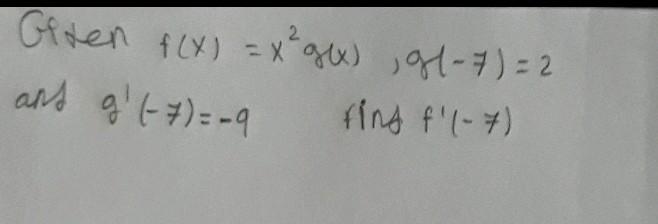 Given f(x) = x²g(x) , g(-7) = 2
and g'(-7) = -9 find f'(-7)